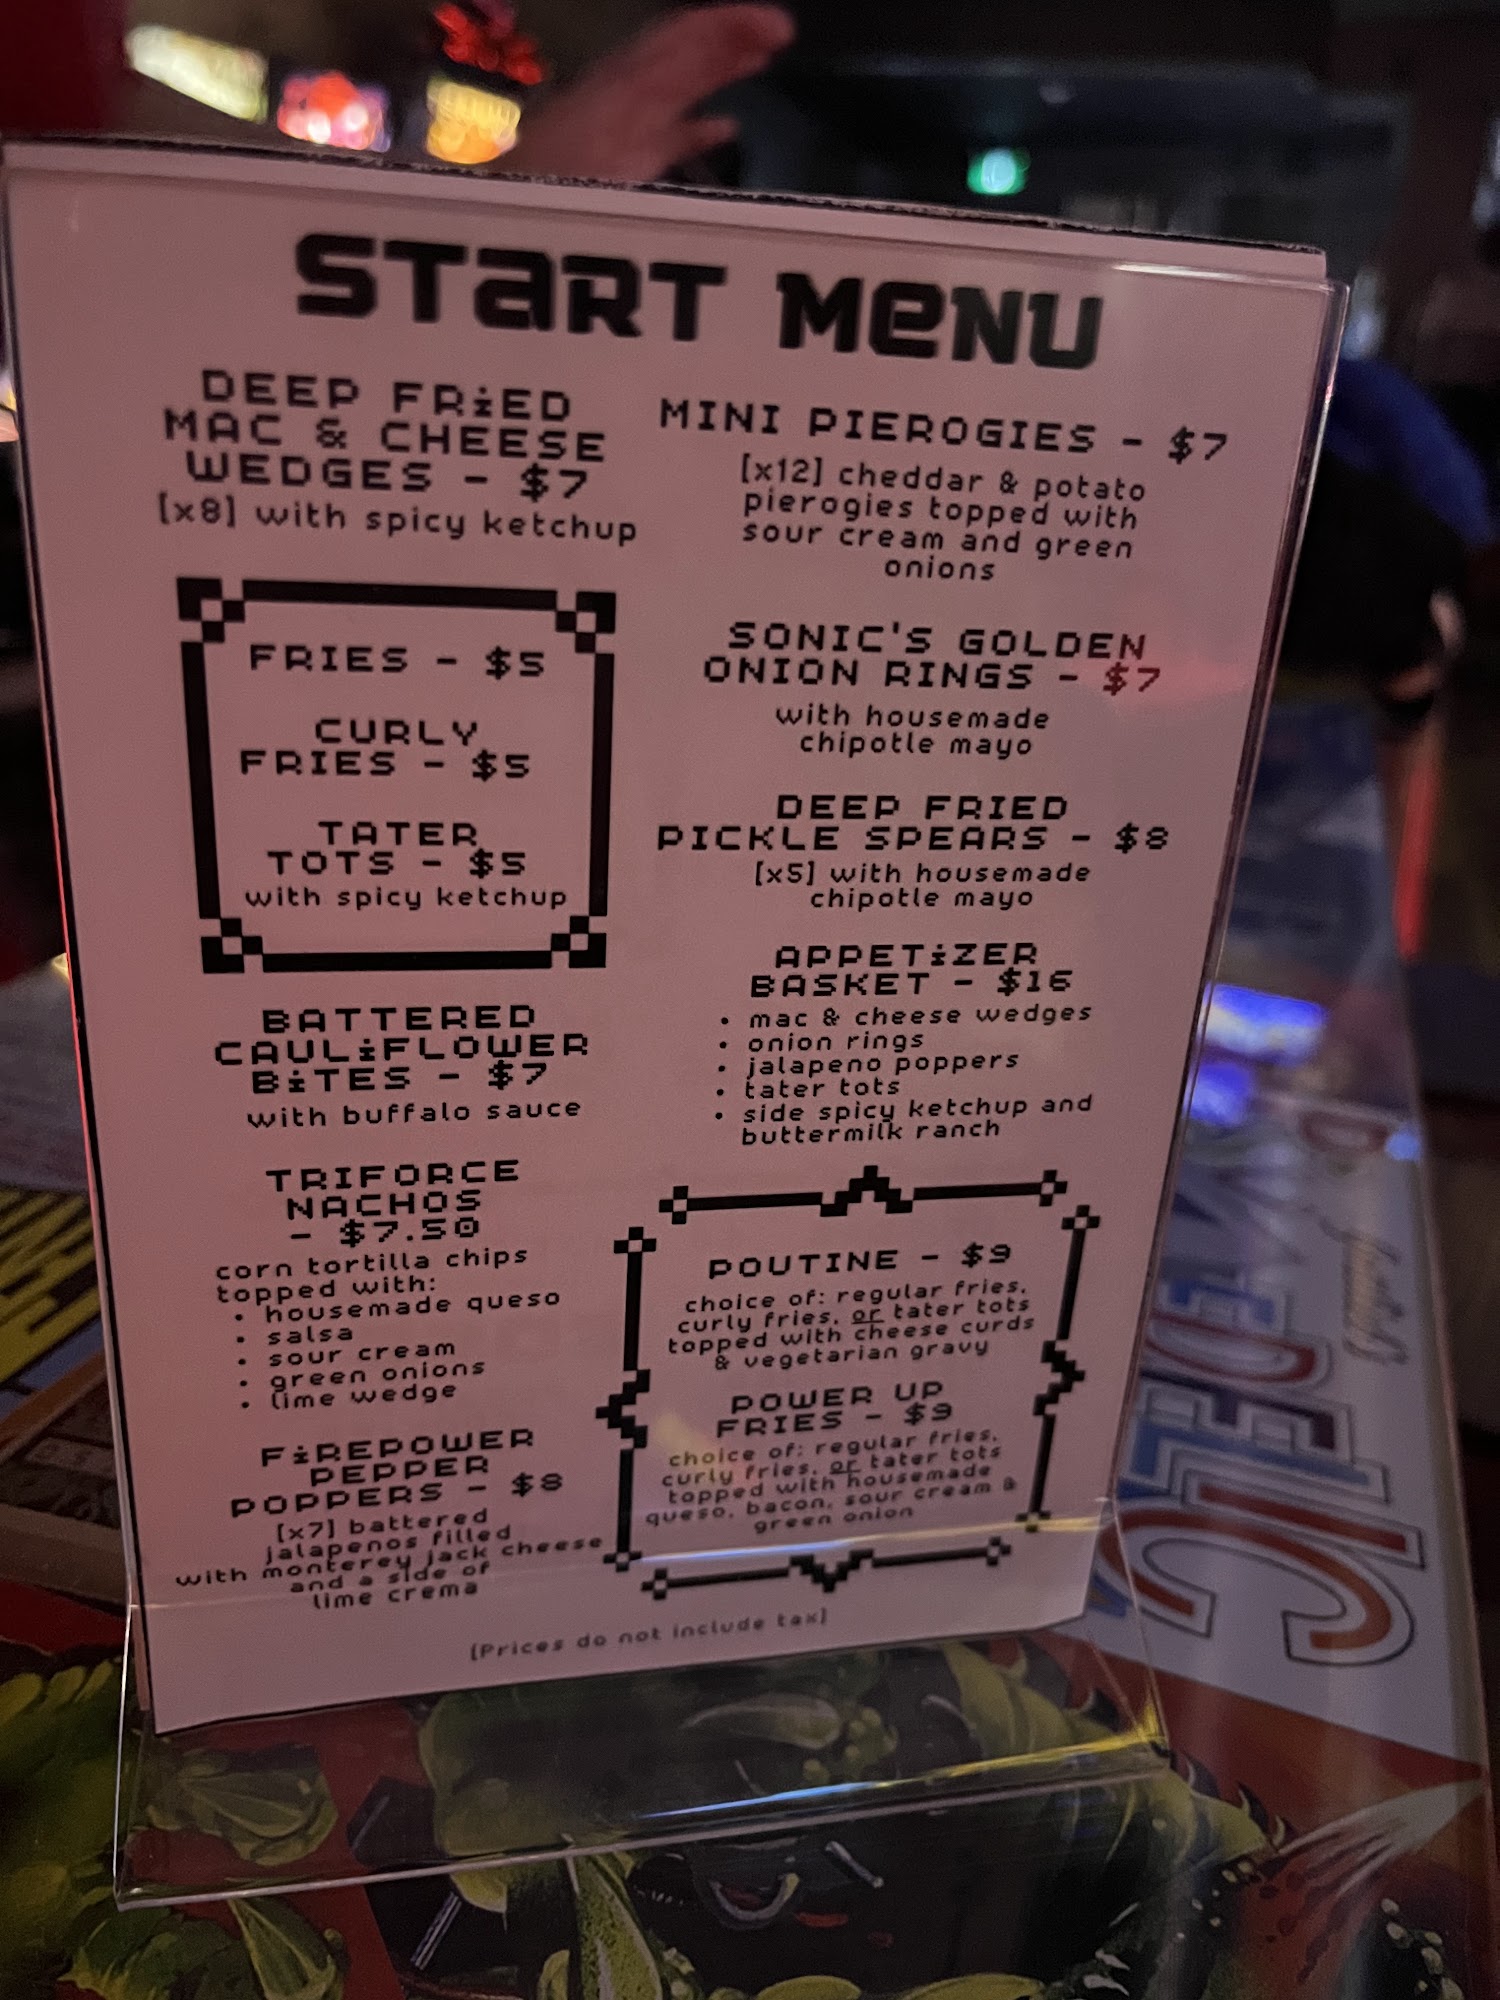 START MENU
DEEP FRIED
MAC & CHEESE
WEDGES - $7
[x8] with spicy ketchup
FRIES - $5
CURLY
FRIES - $5
TATER
TOTS - $5
with spicy ketchup
BATTERED
CAULIFLOWER
BITES - $7
with buffalo sauce
TRIFORCE
NACHOS
- $7.50
corn tortilla chips
topped with:
• housemade queso
• salsa
• sour cream
• green onions
• lime wedge
FIREPOWER
PEPPER
POPPERS - $8
[x7] battered
jalapenos filled
with monterey jack cheese
and a side of
lime crema
MINI PIEROGIES - $7
[x12] cheddar & potato
pierogies topped with
sour cream and green
onions
SONIC'S GOLDEN
ONION RINGS - $7
with housemade
chipotle mayo
DEEP FRIED
PICKLE SPEARS - $8
[x5] with housemade
chipotle mayo
APPETIZER
BASKET - $16
• mac & cheese wedges
• onion rings
• jalapeno poppers
• tater tots
• side spicy ketchup and
buttermilk ranch
POUTINE - $9
choice of: regular fries,
curly fries, or tater tots
topped with cheese curds
& vegetarian gravy
POWER UP
FRIES - $9
choice of: regular fries,
curly fries, or tater tots
topped with housemade
queso, bacon, sour cream &
green onion
[Prices do not include tax]